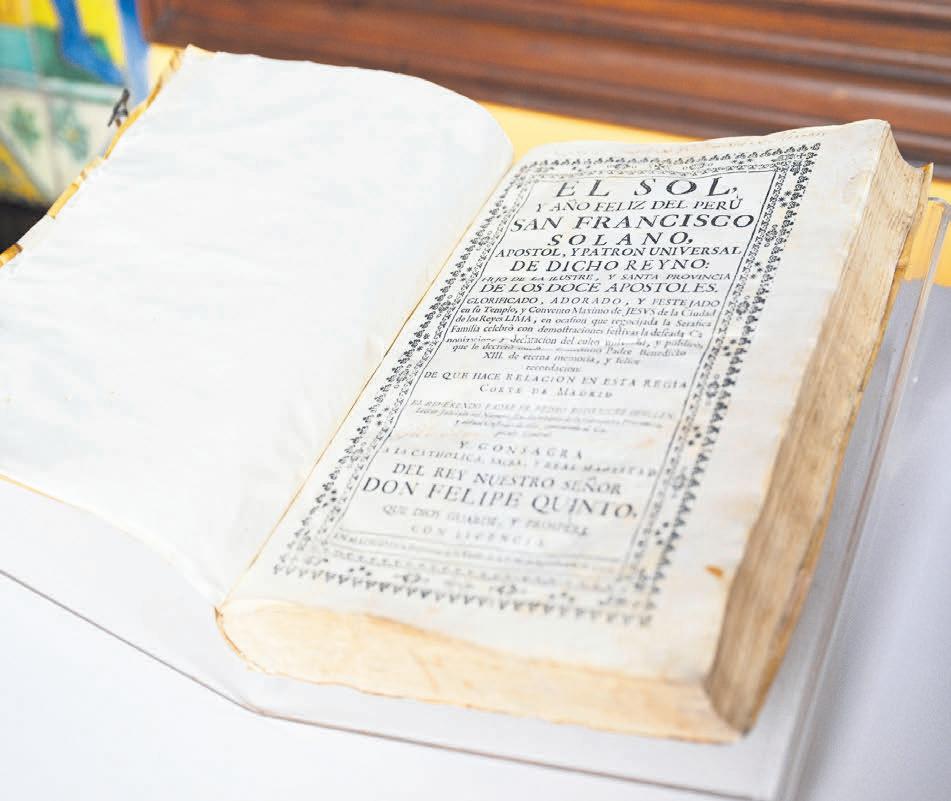 EL SOL,
Y AÑO FELIZ DEL PERÙ
SAN FRANCISCO
SOLANO,
APOSTOL, Y PATRON UNIVERSAL
DE DICHO REYNO:
HIJO DE LA ILUSTRE, Y SANTA PROVINCIA
DE LOS DOCE APOSTOLES.
GLORIFICADO, ADORADO, Y FESTEJADO
en ſu Templo, y Convento Maximo de JESVS de la Ciudad
de los Reyes LIMA, en ocaſion que regocijada la Serafica
Familia celebrò con demoſtraciones feſtivas la deſeada Ca
nonizacion y declaracion del culto y publico,
que le decretò Padre Benedicto
XIII. de eterna memoria, y feliz
recordacion:
DE QUE HACE RELACION EN ESTA REGIA
CORTE DE MADRID
EL REVERENDO PADRE FR. PEDRO
Y CONSAGRA
A LA CATHOLICA, SACRA, Y REAL MAGESTAD
DEL REY NUESTRO SEÑOR
DON FELIPE QUINTO,
QUE DIOS GUARDE, Y PROSPERE
CON LICENCIA